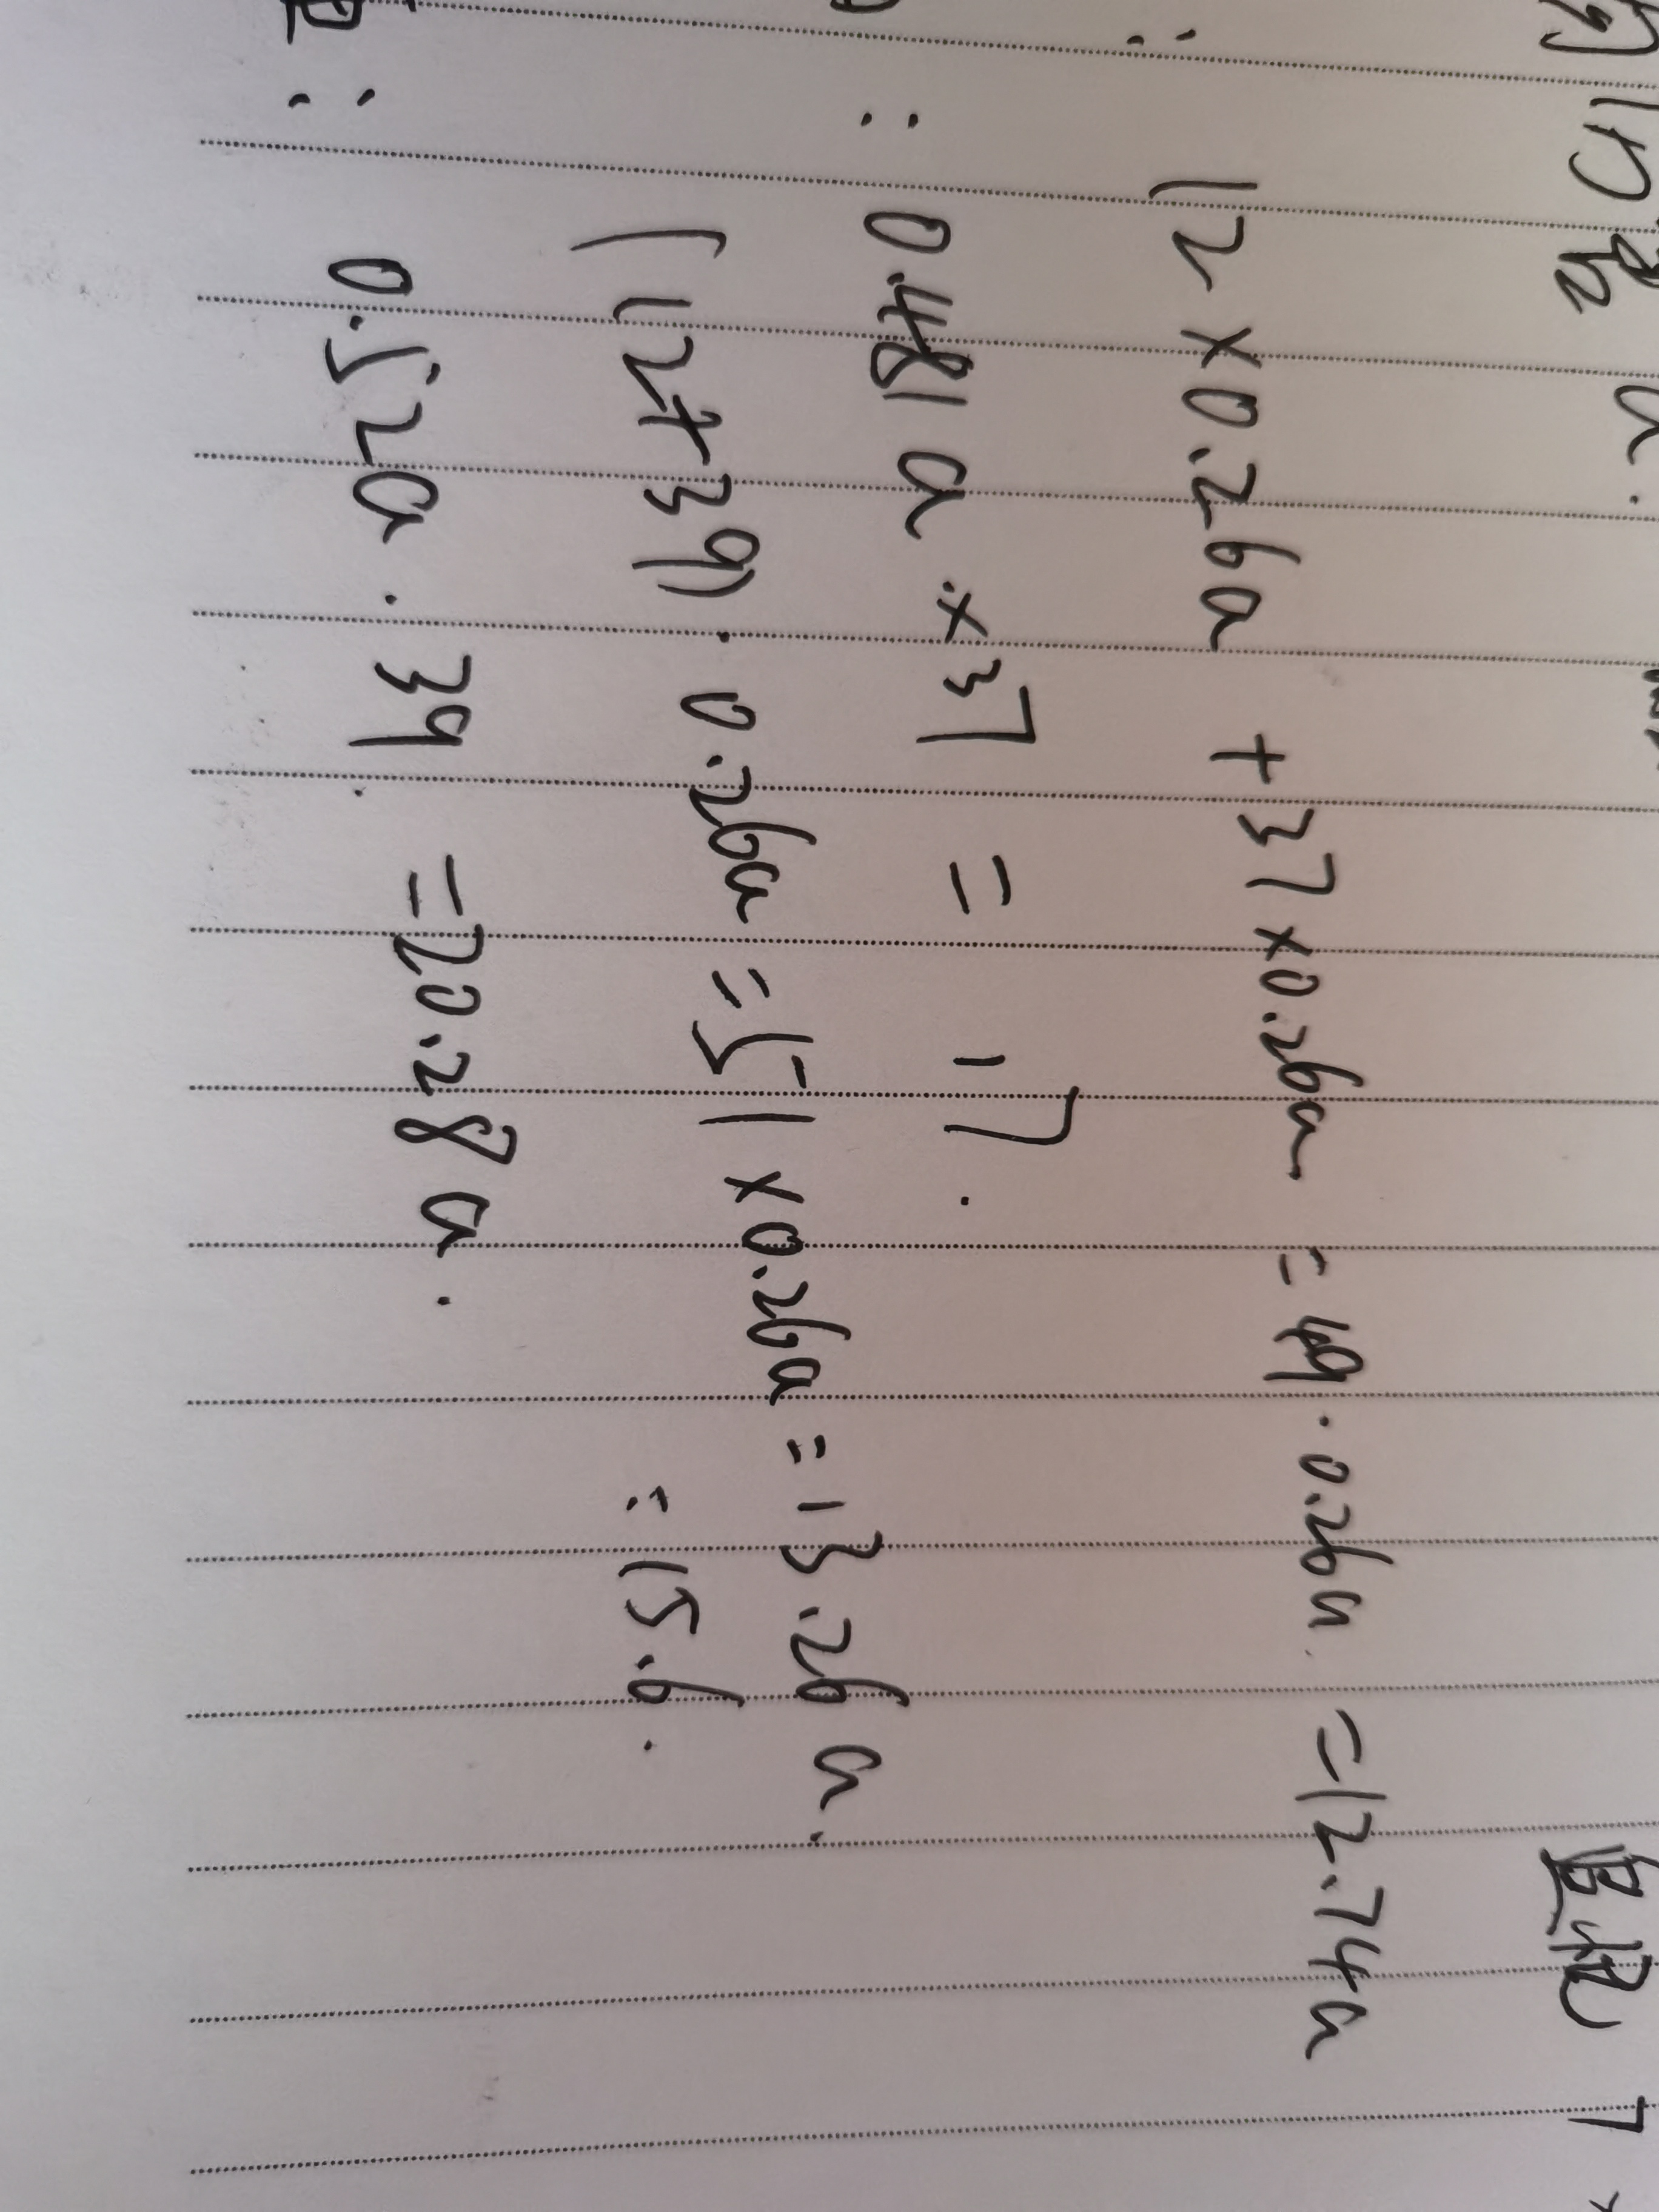 12×0.26a +37×0.26a =49·0.26a =12.74a
: 0.481a ×37 = 17.
(12+39)·0.26a =51×0.26a =13.26a.
15.6.
: 0.52a·39 =20.28a.